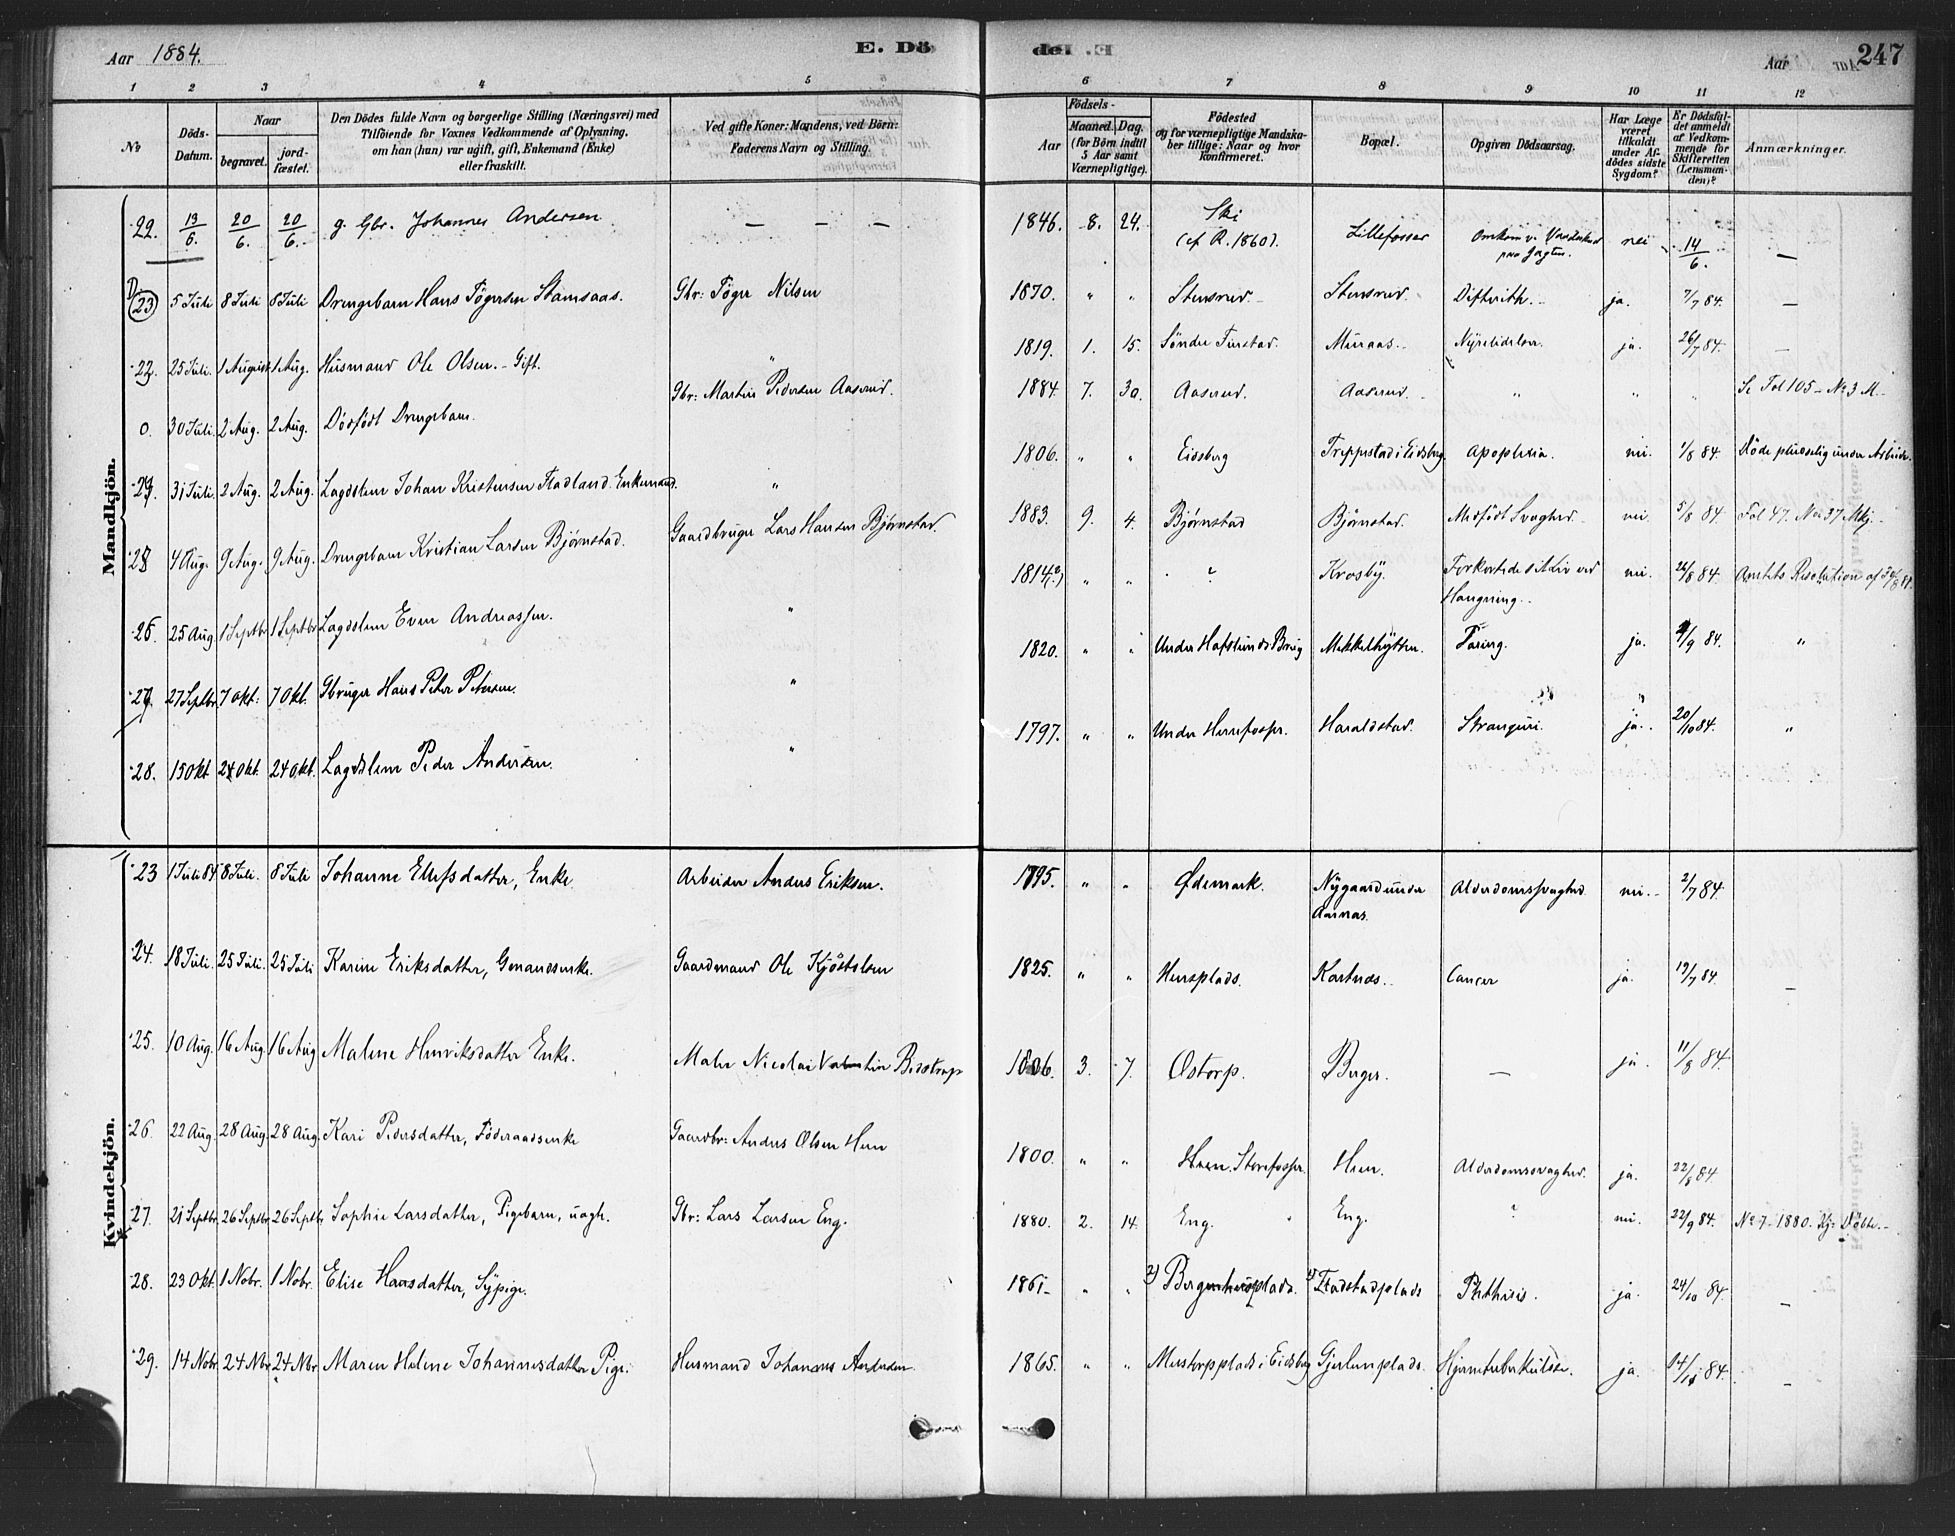 Aar 1884.
E. Döde. E.
Aar
247
1 2 3 4 5 6 7 8 9 10 11 12
No
Döds-Datum.
Naar
begravet. jord-fæstet.
Den Dödes fulde Navn og borgerlige Stilling (Næringsvei) med
Tilföiende for Voxnes Vedkommende af Oplysning,
om han (hun) var ugift, gift, Enkemand (Enke)
eller fraskilt.
Ved gifte Koner: Mandens, ved Börn:
Faderens Navn og Stilling.
Födsels-
Aar
Maaned. Dag.
(for Börn indtil
5 Aar samt
Værnepligtige).
Födested
og for værnepligtige Mandska-
ber tillige: Naar og hvor
konfirmeret.
Bopæl.
Opgiven Dödsaarsag.
Har Læge
været
tilkaldt
under Af-
dödes sidste
Sygdom?
Er Dödsfal-
det anmeldt
af Vedkom-
mende for
Skifteretten
(Lensman-
den)?
Anmærkninger.
Mandkjön.
22. 13/6. 20/6. 20/6. g. Gbr. Johannes Andersen — — — 1846. 8. 24. Ski (cf R. 1860). Lillefosser nei 14/6. —
23 5 Juli 8 Juli 8 Juli Drengebarn Hans Tögersen Stamsaas. Gbr: Töger Nilsen 1870. " " Stensrud. Stensrud. Difterith. ja. 7/7 84. —
25 Juli. 1 August 1 Aug. Husmand Ole Olsen. - Gift. " 1819. 1. 15. Söndre Furstad. Muraas. ja. 26/7 84. —
0. 30 Juli. 2 Aug. 2 Aug. Dödfödt Drengebarn. Gbr: Martin Pedersen Aaserud. 1884. 7. 30. Aaserud. Aaserud. " " " Se Fol 105 - No 3 M.
31 Juli. 2 Aug. 2 Aug. Lægdslem Johan Kristensen Fladland. Enkemand. " 1806. " " Eidsberg Treppstad i Eidsberg. Apoplexia. nei. 1/8 84. Döde pludselig under Arbeide.
4 Aug. 9 Aug. 9 Aug. Drengebarn Kristian Larsen Bjørnstad. Gaardbruger Lars Hansen Bjørnstad. 1883. 9. 4. Bjørnstad Bjørnstad. Medfödt Svaghed. nei. 5/8 84. Fol 47. No 37 Mkj.
26. 25 Aug. 1 Septbr. 1 Septbr. Lægdslem Even Andreassen. " 1814(?) " " ? Krosby. Forkortede sit Liv ved Hængning. nei. 26/8 84. Amtets Resolution af
27 Septbr. 7 Okt. 7 Okt. Gbruger Hans Peter Petersen. " 1820. " " Under Hafslunds Brug Mikkelhytten. Tæring. ja. /9 84. "
28. 15 Okt 24 Okt. 24 Okt. Lægdslem Peder Andersen. " 1797. " " Under Herrefosser. Haraldstad. Stranguri. ja. 20/10 84. "
Kvindekjön.
23 1 Juli 84 8 Juli. 8 Juli Johanne Ellefsdatter, Enke Arbeider Anders Eriksen. 1795. " " Ødemark. Nygaard under Aarnæs. Alderdomssvaghed. nei. 2/7 84.
24. 18 Juli. 25 Juli. 25 Juli Karine Eriksdatter, Gmandsenke. Gaardmand Ole Kjöstelsen 1825. " " Hensplads. Kartnæs. Cancer ja. 19/7 84. —
25. 10 Aug. 16 Aug. 16 Aug Malene Henriksdatter Enke. Maler Nicolai Valentin Bidstrup 1806. 3. 7. Østorp. Berger. — ja. 11/8 84.
26. 22 Aug. 28 Aug. 28 Aug. Kari Pedersdatter, Föderaadsenke Gaardbr: Anders Olsen Hen 1800. " " Hæen. Storefosser. Hen. Alderdomssvaghed. ja. 22/8 84.
27. 21 Septbr. 26 Septbr. 26 Septbr. Sophie Larsdatter, Pigebarn, uægt. Gbr: Lars Larsen Eng. 1880. 2. 14. Eng. Eng. ? nei. 22/9 84. No 7 - 1880. Kj. Döbte.
28. 23 Okt. 1 Nobr. 1 Nobr. Elise Hansdatter, Sypige. 1861 " " 2) Bergerhusplads. 1) Fladstadplads Phthisis. ja. 24/10 84. —
29. 14 Nobr. 24 Nbr. 24 Nbr Maren Helene Johannesdatter Pige. Husmand Johannes Andersen 1865. " " Mustorpplads i Eidsberg Gjerlumplads. Hjernetuberkulose. ja. 14/11 84. —